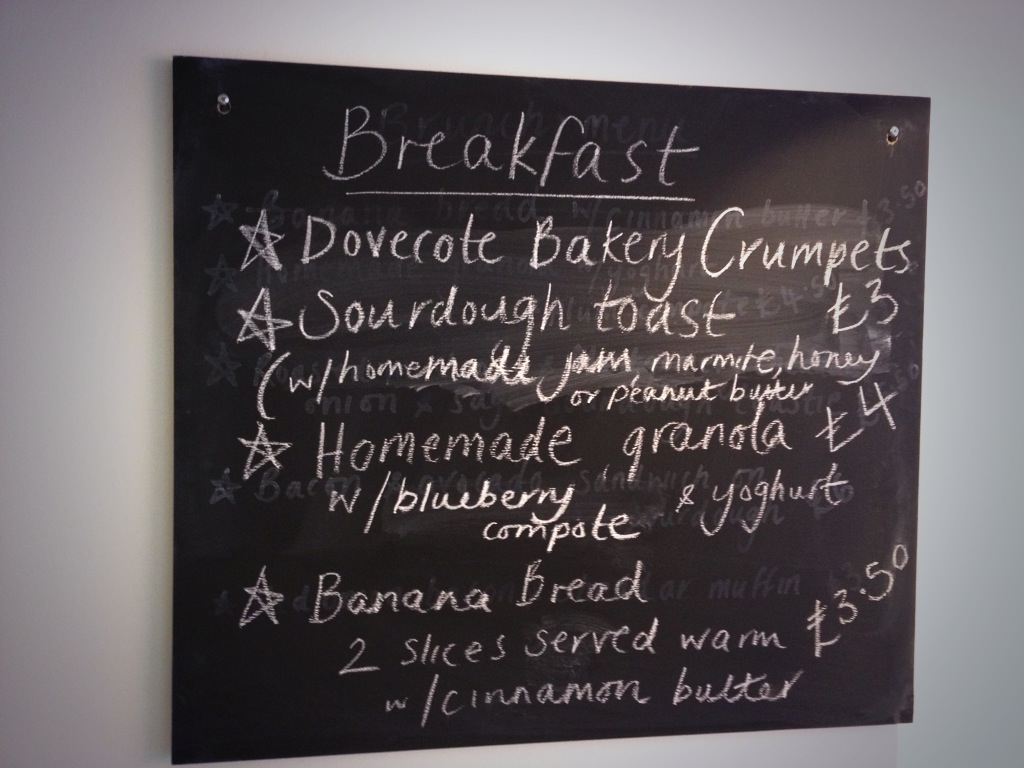 Breakfast
☆ Dovecote Bakery Crumpets
☆ Sourdough toast £3
(w/homemade jam, marmite, honey
or peanut butter
☆ Homemade granola £4
w/blueberry & yoghurt
compote
☆ Banana Bread £3.50
2 slices served warm
w/cinnamon butter